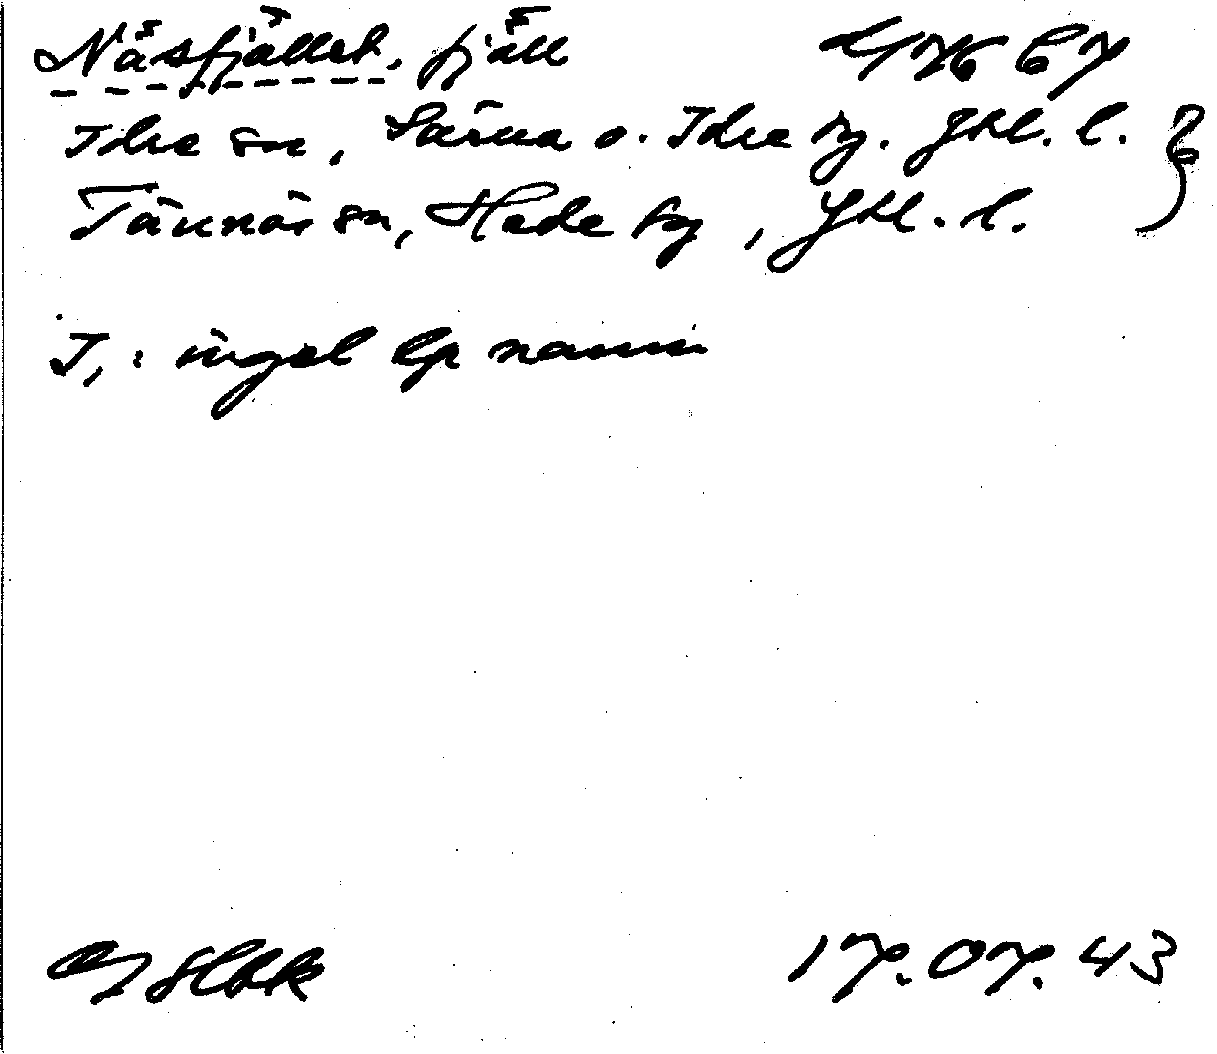 Näsfjället, fjäll
Idre sn, Särna o. Idre tg. Jkl. l. }?
Tännäs sn, Hede tg, Jtl. l.
J,: inget lp namn
17.07.43